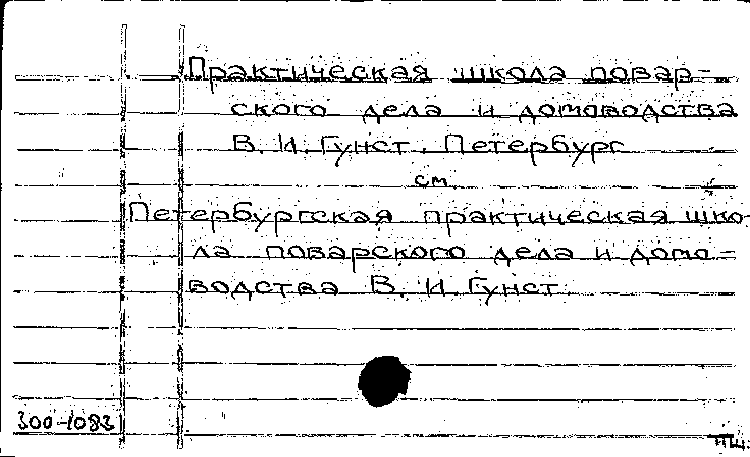 Практическая школа повар-
ского дела и домоводства
В. И. Гунст. Петербург
см.
Петербургская практическая шко-
ла поварского дела и домо-
водства В. И. Гунст.
300-1082